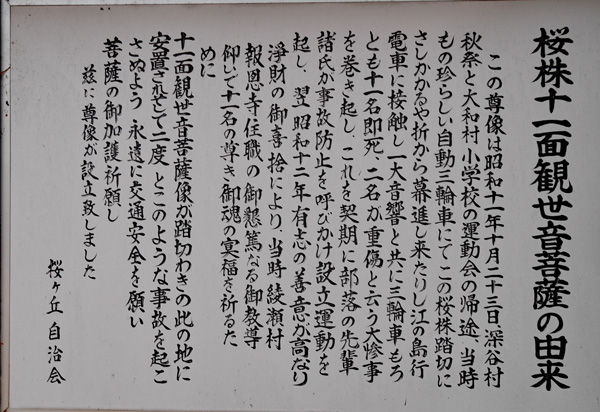 桜株十一面観世音菩薩の由来
この尊像は昭和十一年十月二十三日深谷村
秋祭と大和村小学校の運動会の帰途、当時
もの珍らしい自動三輪車にてこの桜株踏切に
さしかかるや折から驀進し来たりし江の島行
電車に接触し一大音響と共に三輪車もろ
とも十一名即死、二名が重傷と云う大惨事
を巻き起し、これを契期に部落の先輩
諸氏が事故防止を呼びかけ設立運動を
起し、翌昭和十二年有志の善意が高なり
淨財の御喜捨により、当時綾瀬村
報恩寺住職の御懇篤なる御教導
仰いで十一名の尊き御魂の冥福を祈るた
めに
十一面観世音菩薩像が踏切わきの此の地に
安置されて二度とこのような事故を起こ
さぬよう永遠に交通安全を願い
菩薩の御加護祈願し
茲に尊像が設立致しました
桜ヶ丘自治会